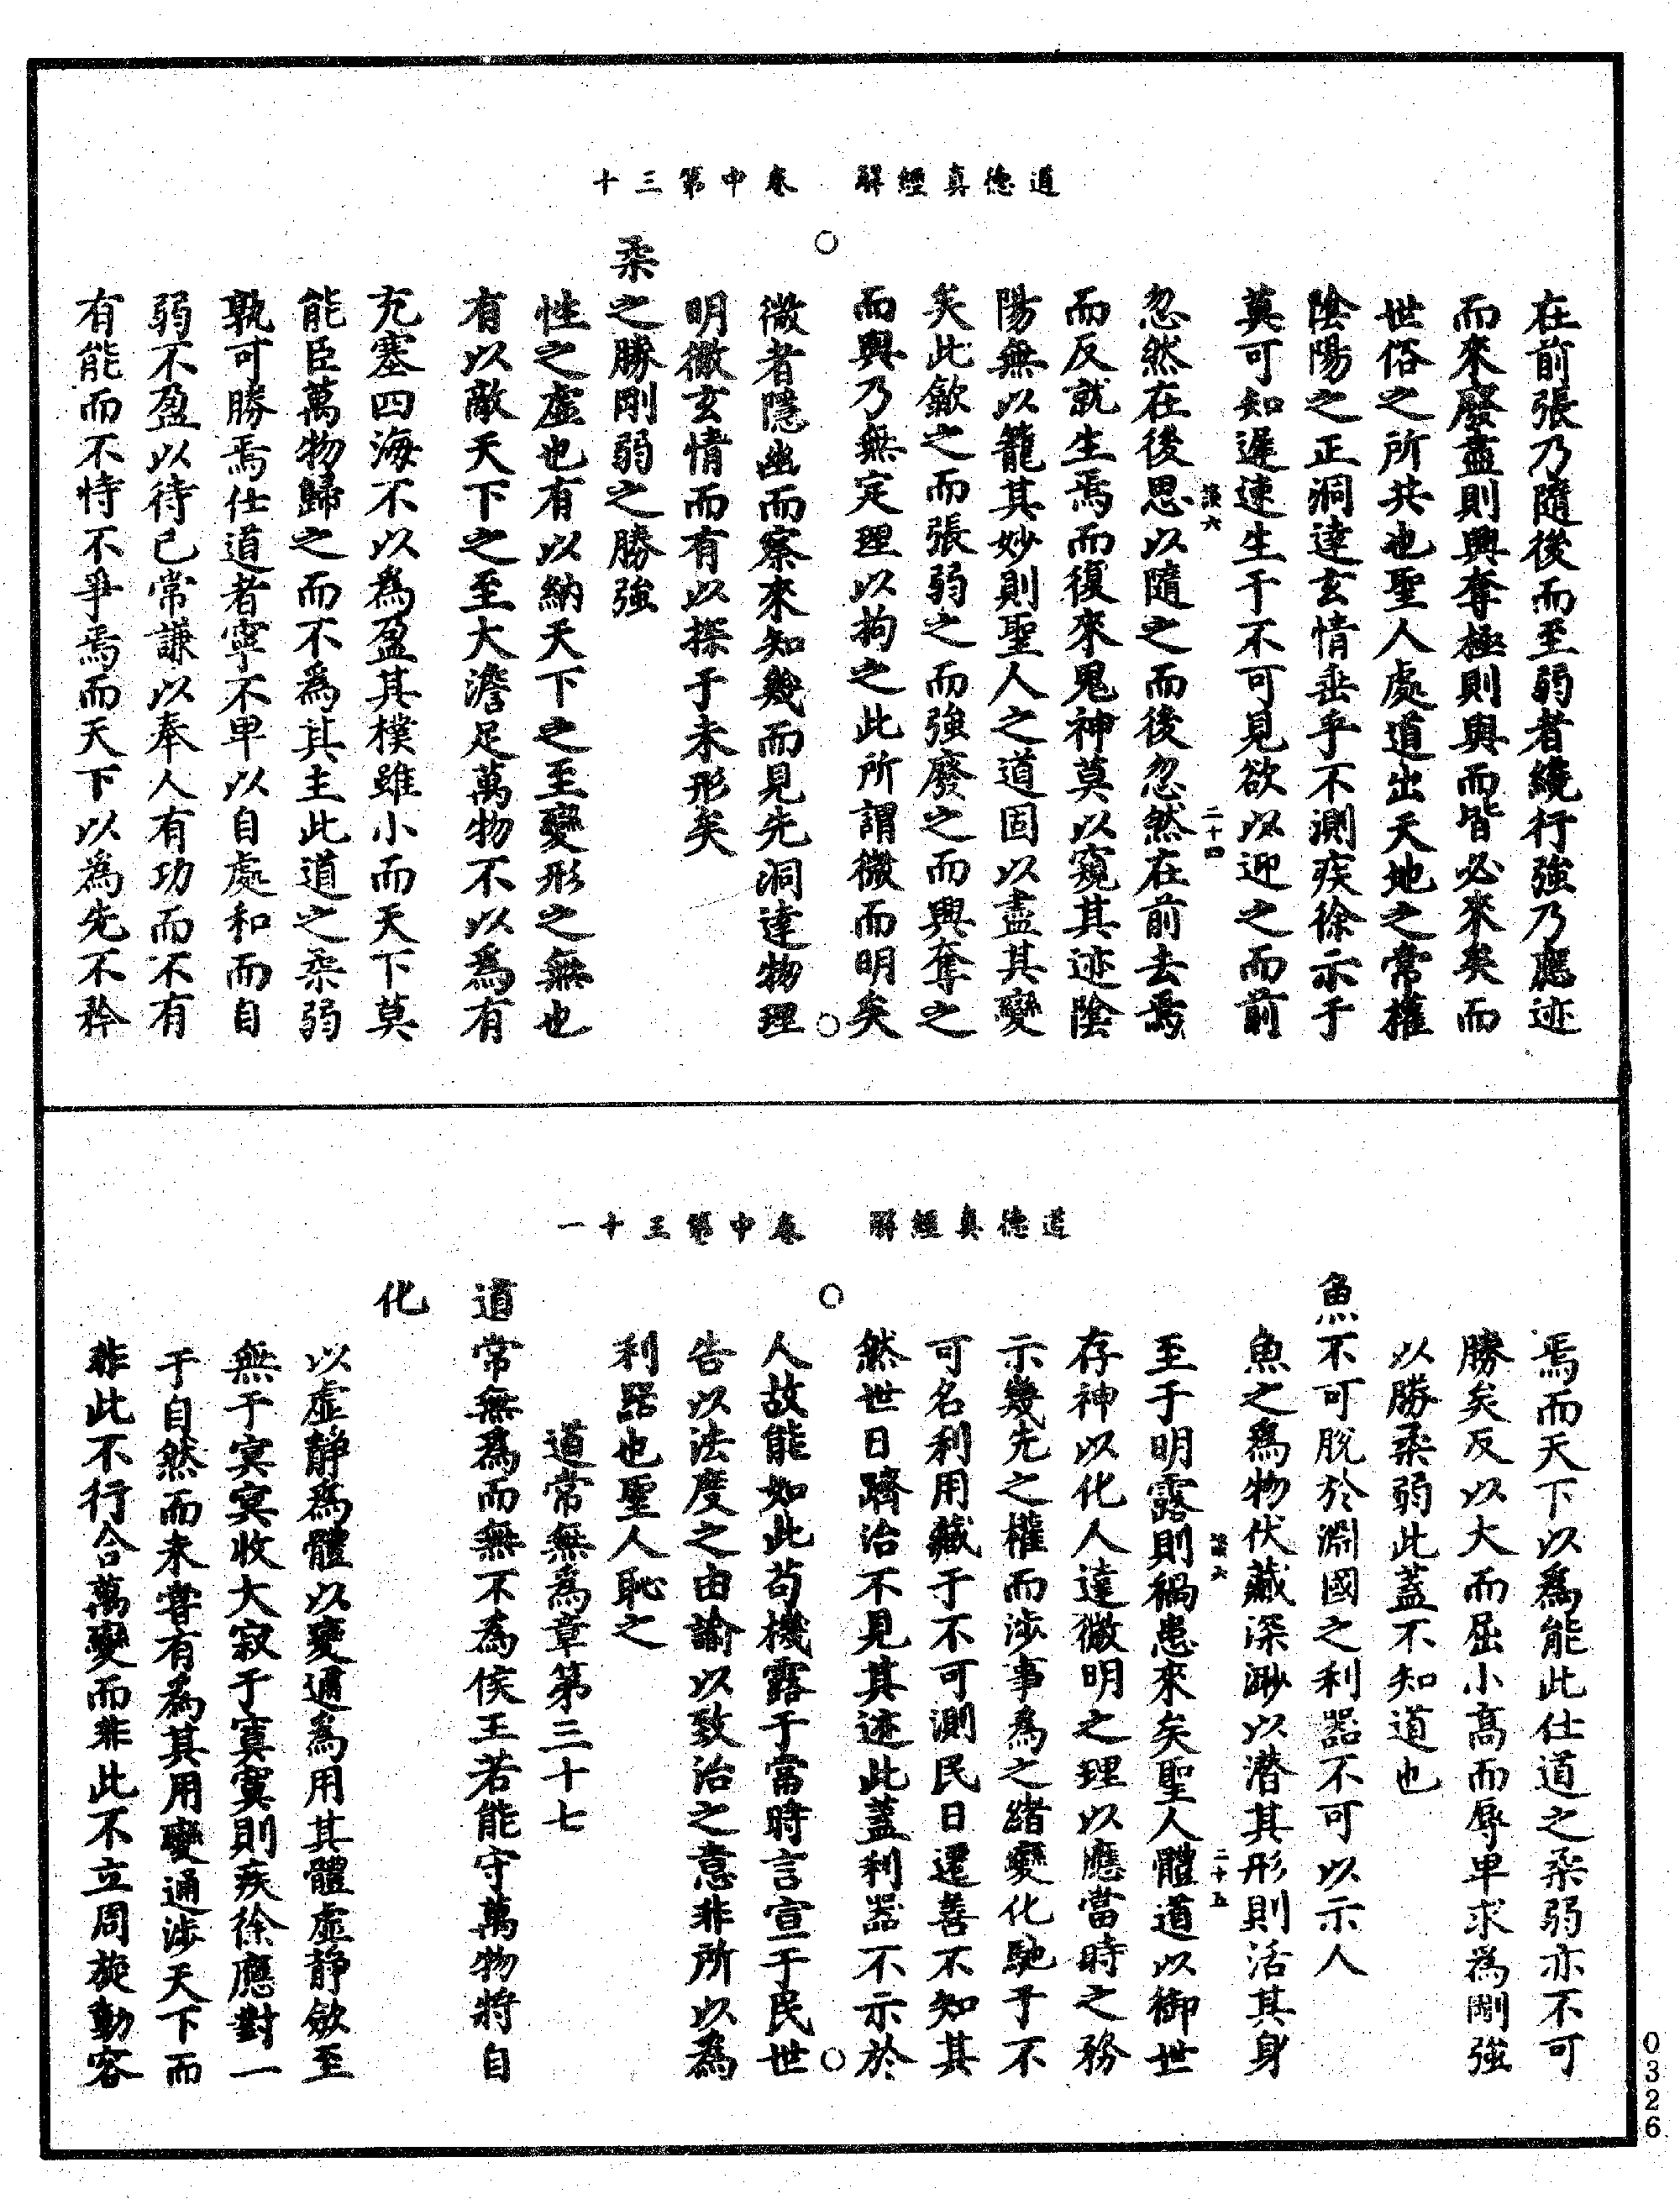 道德真經解　卷中第三十
在前張乃隨後而至弱者繞行強乃應迹
而來廢盡則興奪極則與而皆必來矣而
世俗之所共也聖人處道出天地之常權
陰陽之正洞達玄情垂乎不測疾徐示于
莫可知遲速生于不可見欲以迎之而前
談六　二十四
忽然在後思以隨之而後忽然在前去焉
而反就生焉而復來鬼神莫以窺其迹陰
陽無以籠其妙則聖人之道固以盡其變
矣此歙之而張弱之而強廢之而興奪之
而與乃無定理以拘之此所謂微而明矣
微者隱幽而察來知幾而見先洞達物理
明徹玄情而有以探于未形矣
柔之勝剛弱之勝強
性之虛也有以納天下之至變形之無也
有以敵天下之至大澹足萬物不以為有
充塞四海不以為盈其樸雖小而天下莫
能臣萬物歸之而不為其主此道之柔弱
孰可勝焉仕道者寧不卑以自處和而自
弱不盈以待己常謙以奉人有功而不有
有能而不恃不爭焉而天下以為先不矜
道德真經解　卷中第三十一
焉而天下以為能此仕道之柔弱亦不可
勝矣反以大而屈小高而辱卑求為剛強
以勝柔弱此蓋不知道也
魚不可脫於淵國之利器不可以示人
魚之為物伏藏深渺以潛其形則活其身
談六　二十五
至于明露則禍患來矣聖人體道以御世
存神以化人達微明之理以應當時之務
示幾先之權而涉事為之緒變化馳于不
可名利用藏于不可測民日遷善不知其
然世日躋治不見其迹此蓋利器不示於
人故能如此苟機露于當時言宣于民世
告以法度之由諭以致治之意非所以為
利器也聖人恥之
道常無為章第三十七
道常無為而無不為侯王若能守萬物將自
化
以虛靜為體以變通為用其體虛靜斂至
無于冥冥收大寂于寞寞則疾徐應對一
于自然而未嘗有為其用變通涉天下而
非此不行合萬變而非此不立周旋動容
0326